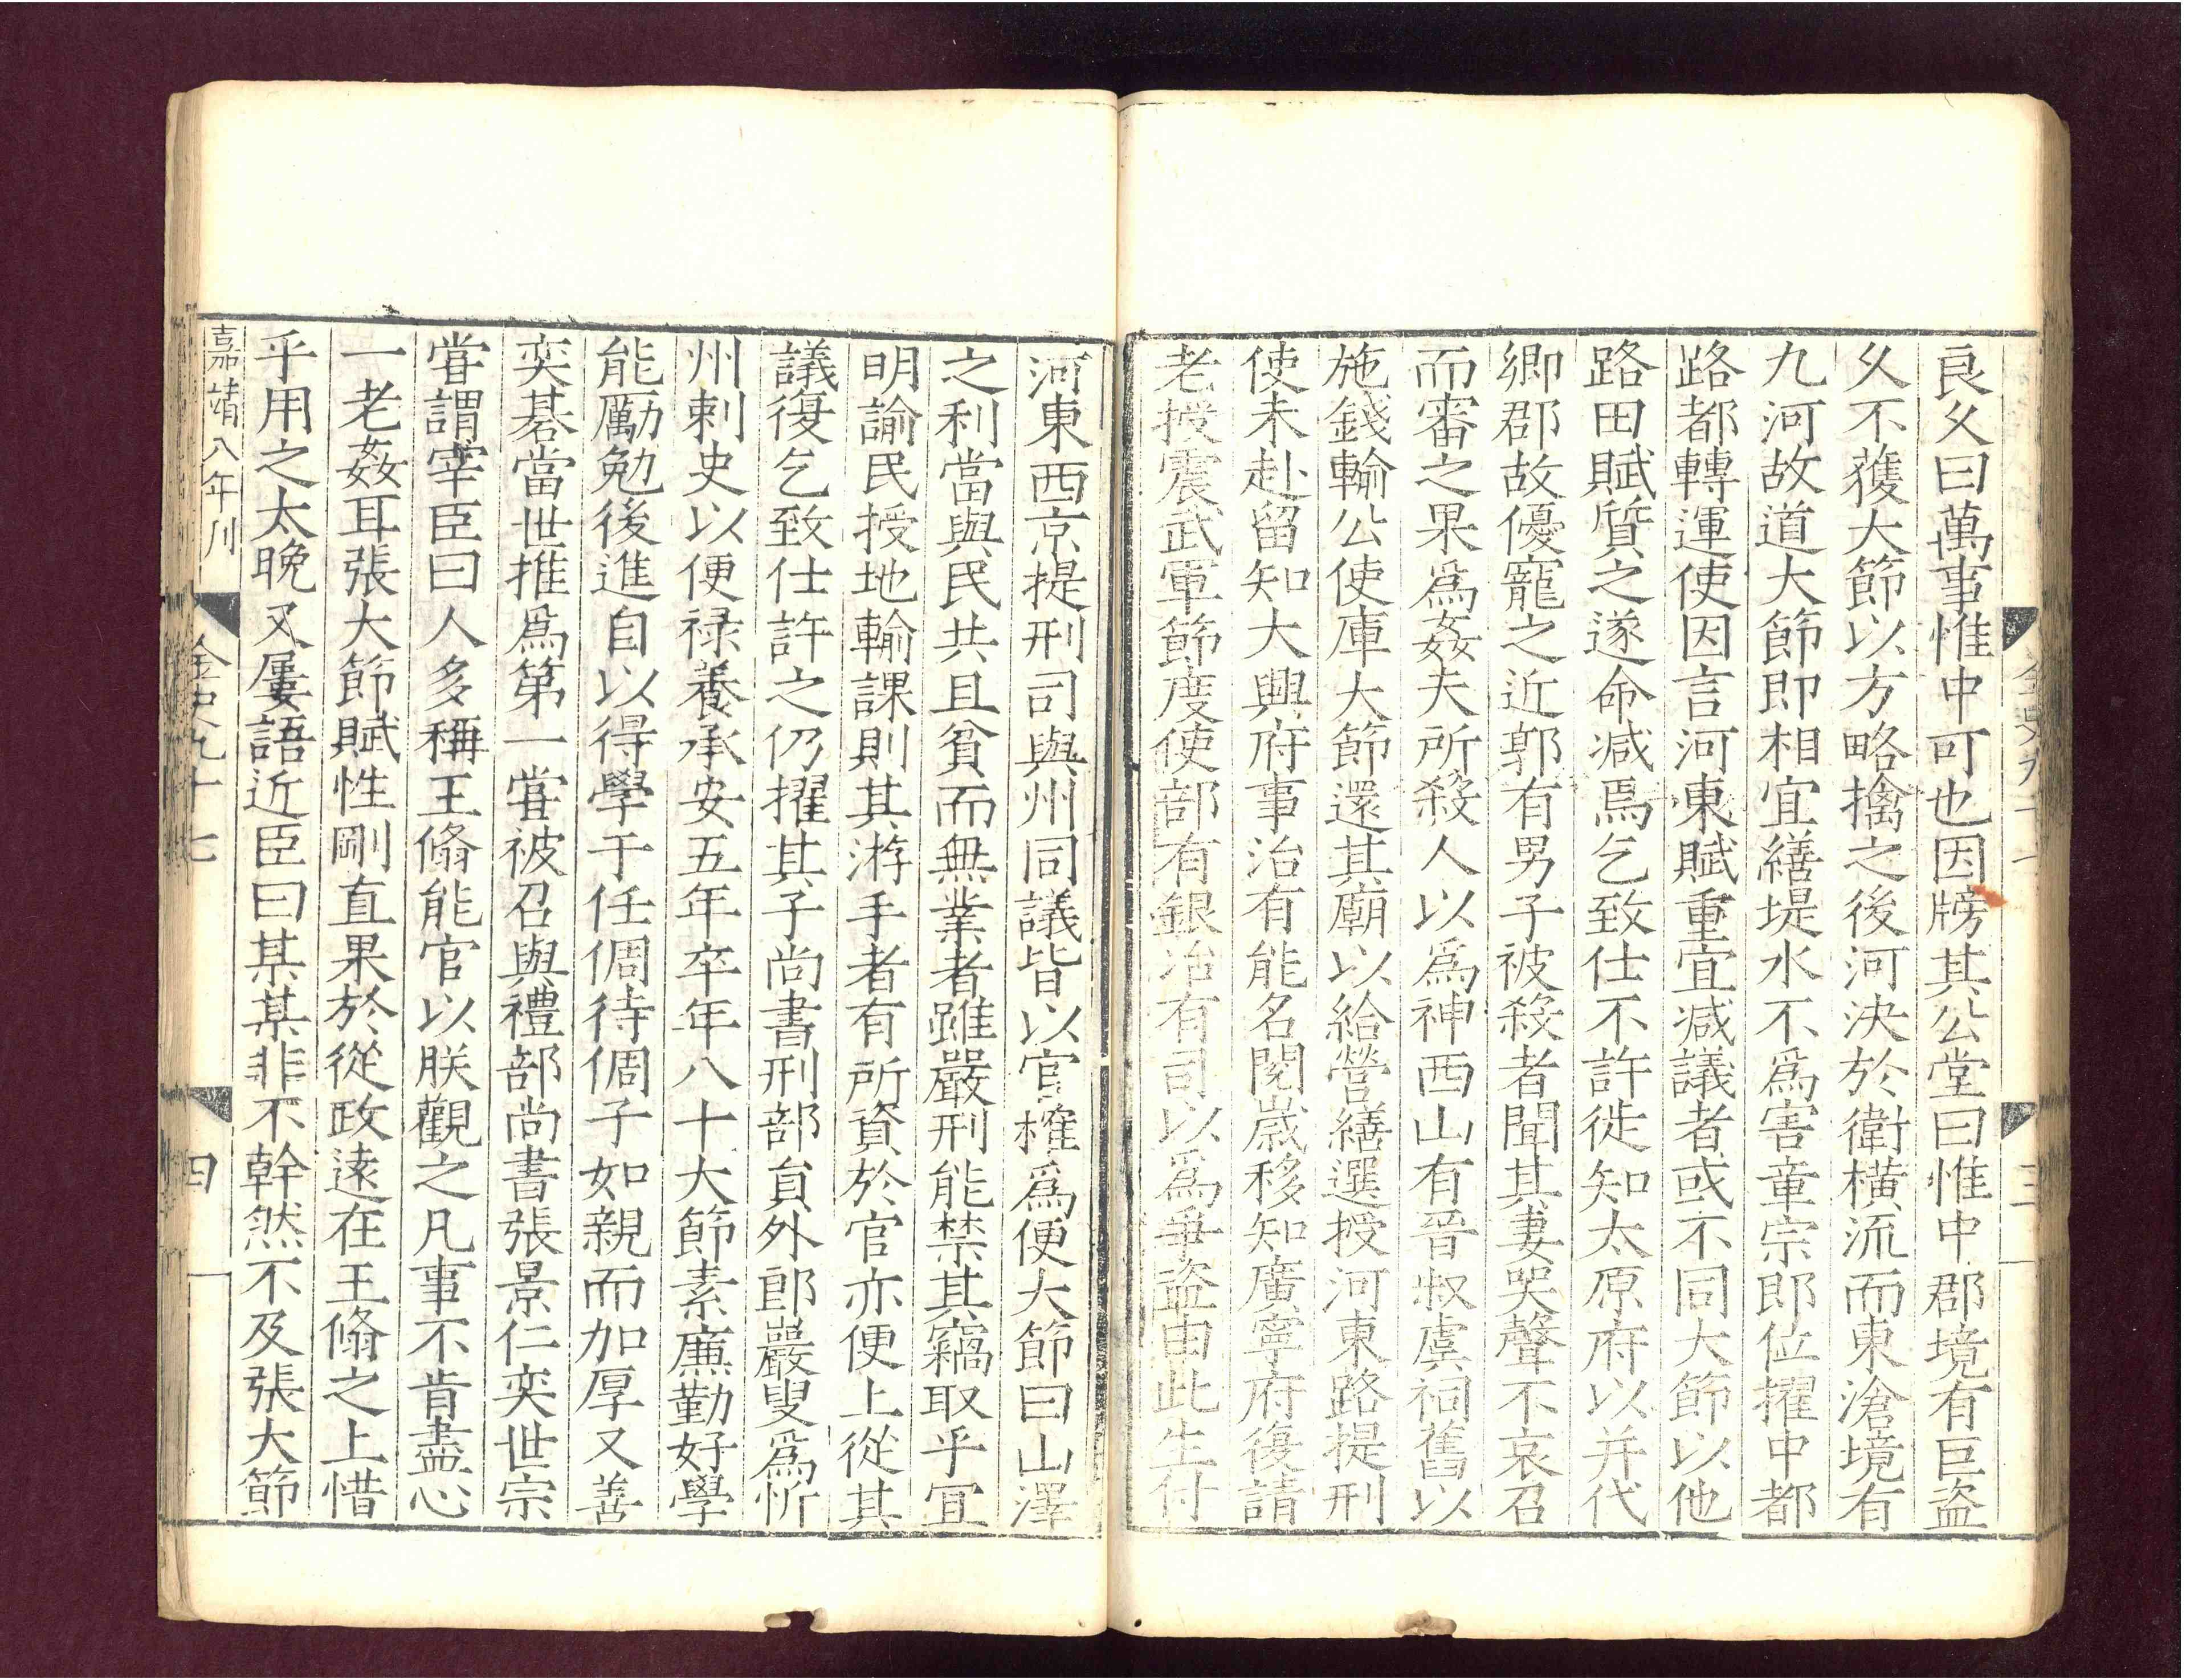 良久曰萬事惟中可也因牓其公堂曰惟中郡境有巨盜
久不獲大節以方略擒之後河決於衛橫流而東滄境有
九河故道大節即相宜繕堤水不爲害章宗即位擢中都
路都轉運使因言河東賦重宜減議者或不同大節以他
路田賦質之遂命減焉乞致仕不許徙知太原府以并代
鄉郡故優寵之近郭有男子被殺者聞其妻哭聲不哀召
而審之果爲姦夫所殺人以爲神西山有晉叔虞祠舊以
施錢輸公使庫大節還其廟以給營繕選授河東路提刑
使未赴留知大興府事治有能名閱嵗移知廣寧府復請
老授震武軍節度使部有銀冶有司以爲爭盜由此生付
河東西京提刑司與州同議皆以官榷爲便大節曰山澤
之利當與民共且貧而無業者雖嚴刑能禁其竊取乎宜
明諭民授地輸課則其游手者有所資於官亦便上從其
議復乞致仕許之仍擢其子尚書刑部貟外郎巖叟爲忻
州刺史以便祿養承安五年卒年八十大節素廉勤好學
能勵勉後進自以得學于任倜待倜子如親而加厚又善
奕棊當世推爲第一甞被召與禮部尚書張景仁奕世宗
甞謂宰臣曰人多稱王翛能官以朕觀之凡事不肯盡心
一老姦耳張大節賦性剛直果於從政遠在王翛之上惜
乎用之太晚又屢語近臣曰某某非不幹然不及張大節
嘉靖八年刊
金史九十七
四